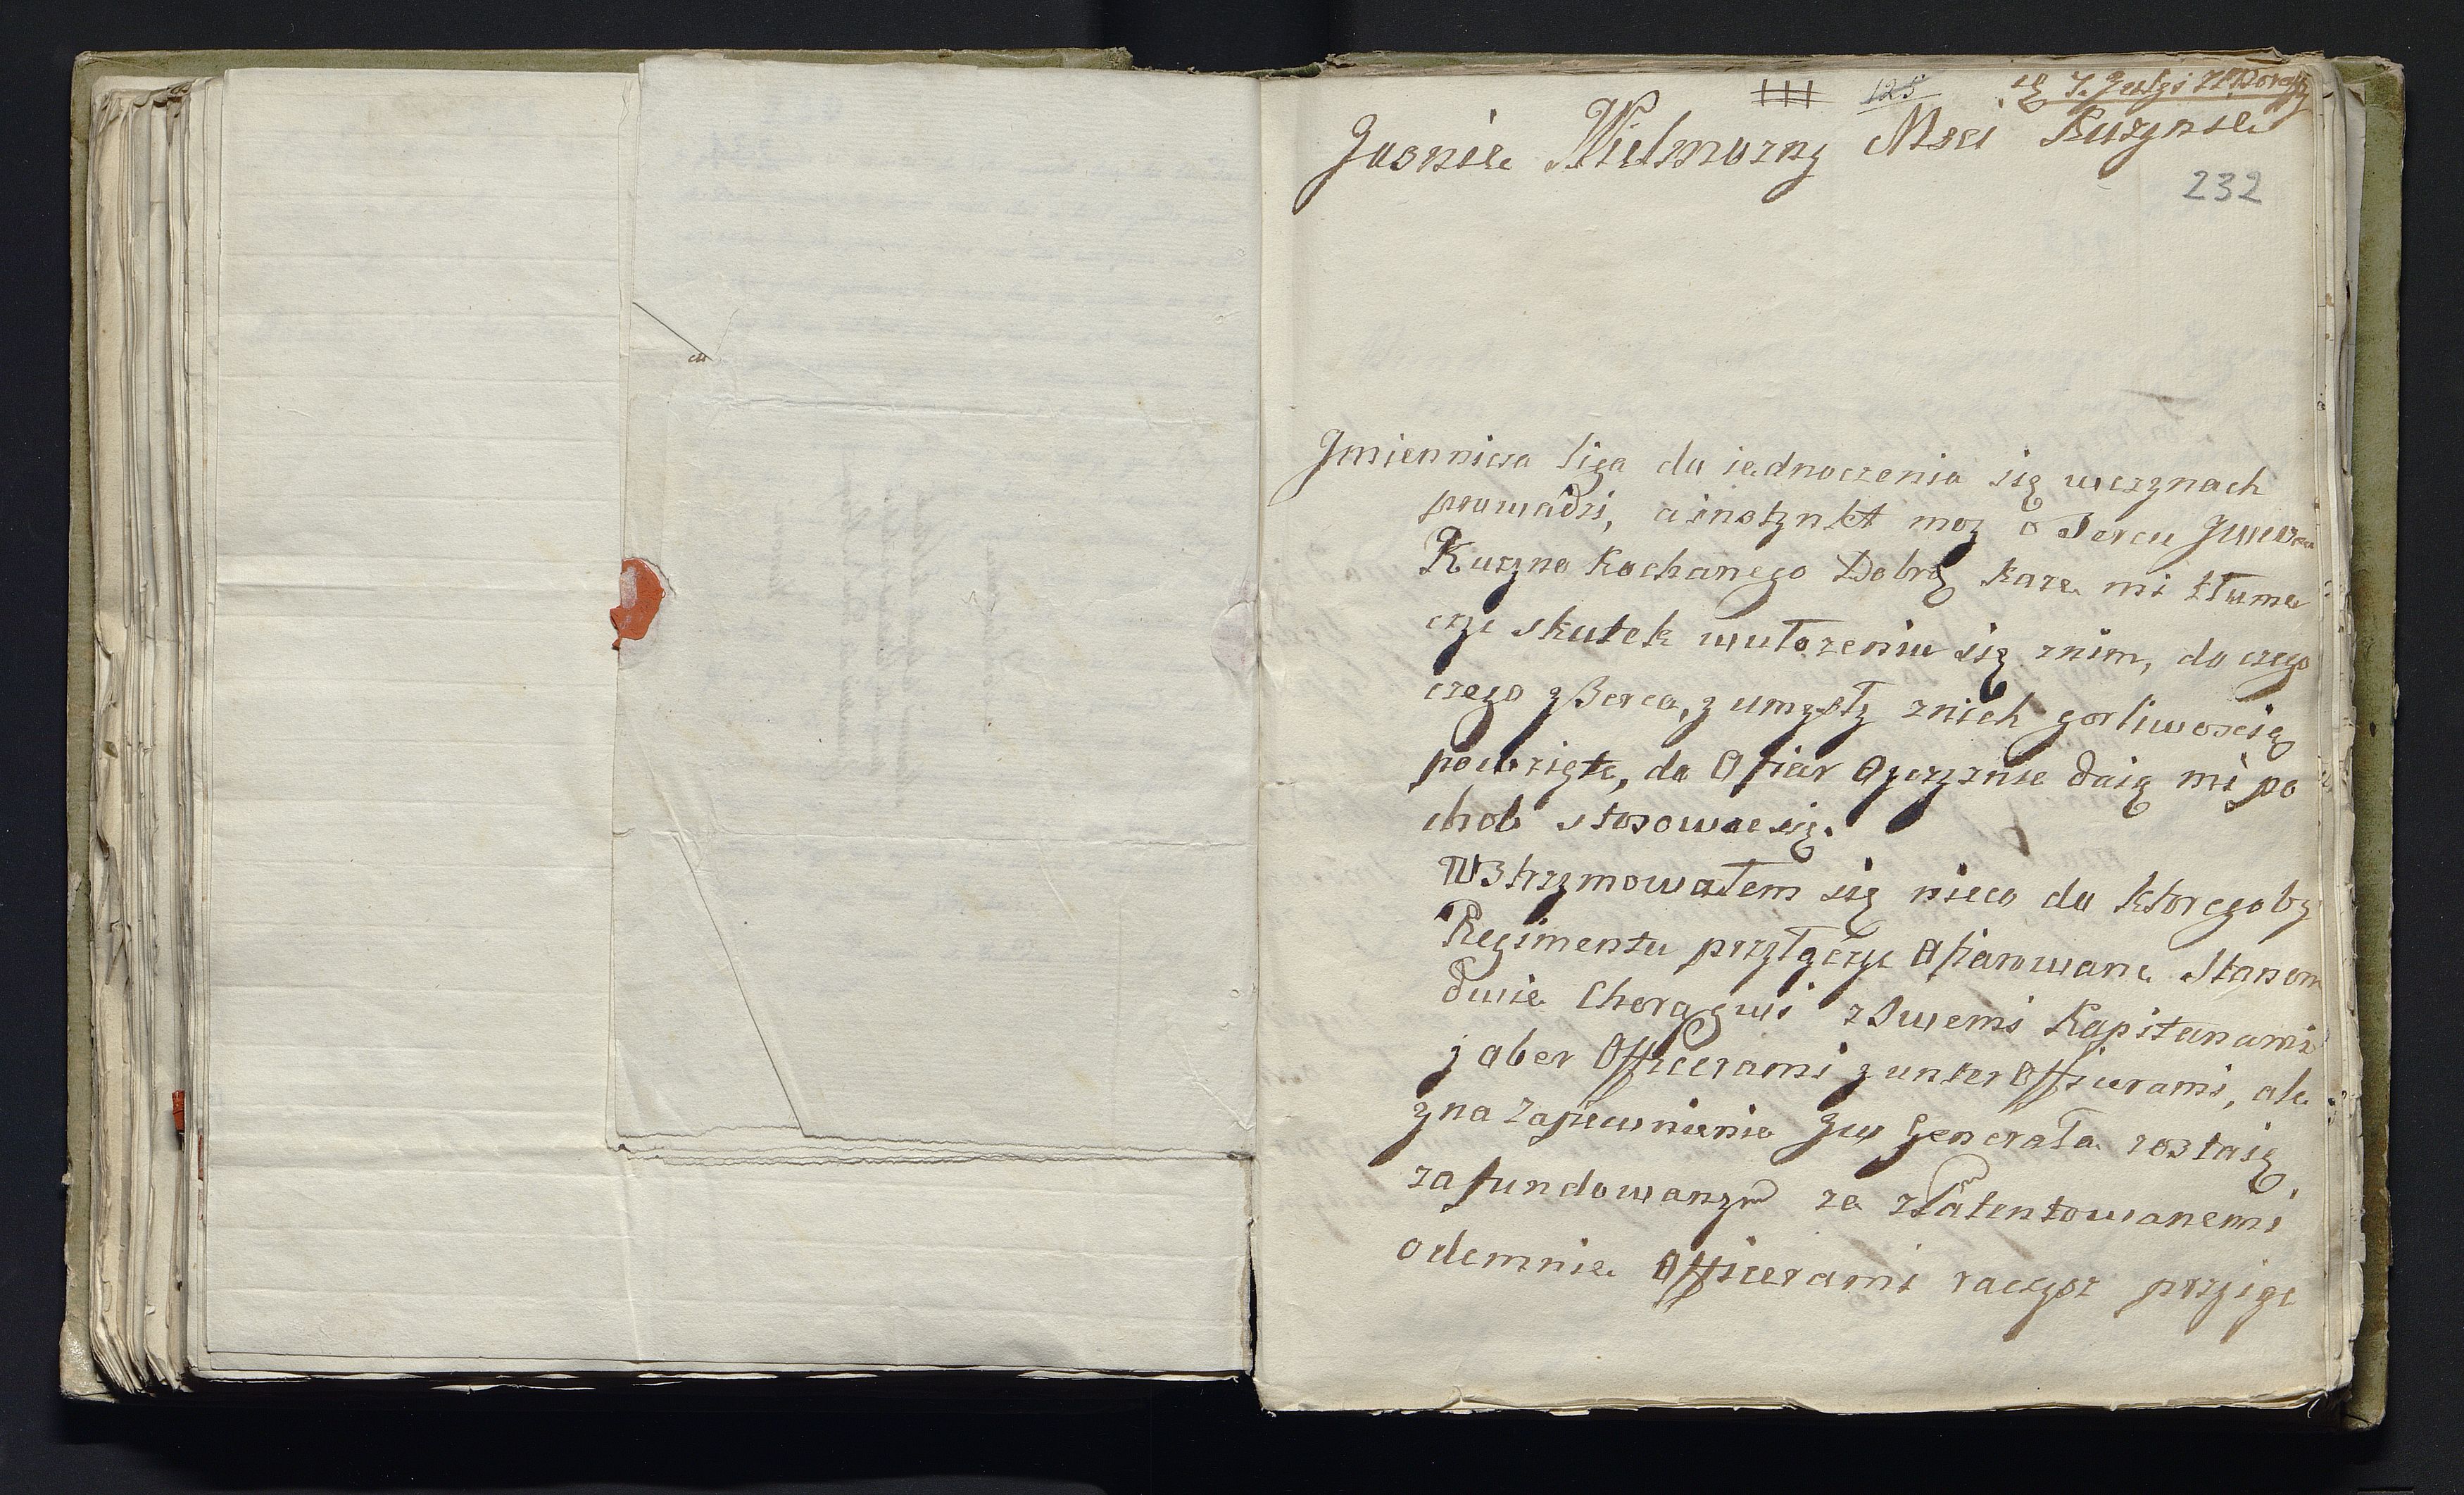 125
Jasnie Wielmozny Msci Kuzynie
232
Jmiennicza liga do iednoczenia się wczynach
prowadzi, a instynkt moy o Sercu
Kuzyna Kochanego Dobrą kaze mi tłuma
czyc skutek wułozeniu się znim, do czego
czego y serca, y umysły znich gorliwoscią
powzięte, do Ofiar Oyczyznie daią mi po
chob stosowac się.
Wstrzymowałem się nieco do ktoregoby
Regimentu przyłączyc Ofiarowane Stanom
dwie Chorągwi zdwema Kapitanami
y ober Officerami y unter Officerami, ale
y na zapewnienie Jw Generała zostaię
zafundowanym ze zPatentowanemi
odemnie Officerami raczysz przyiąc